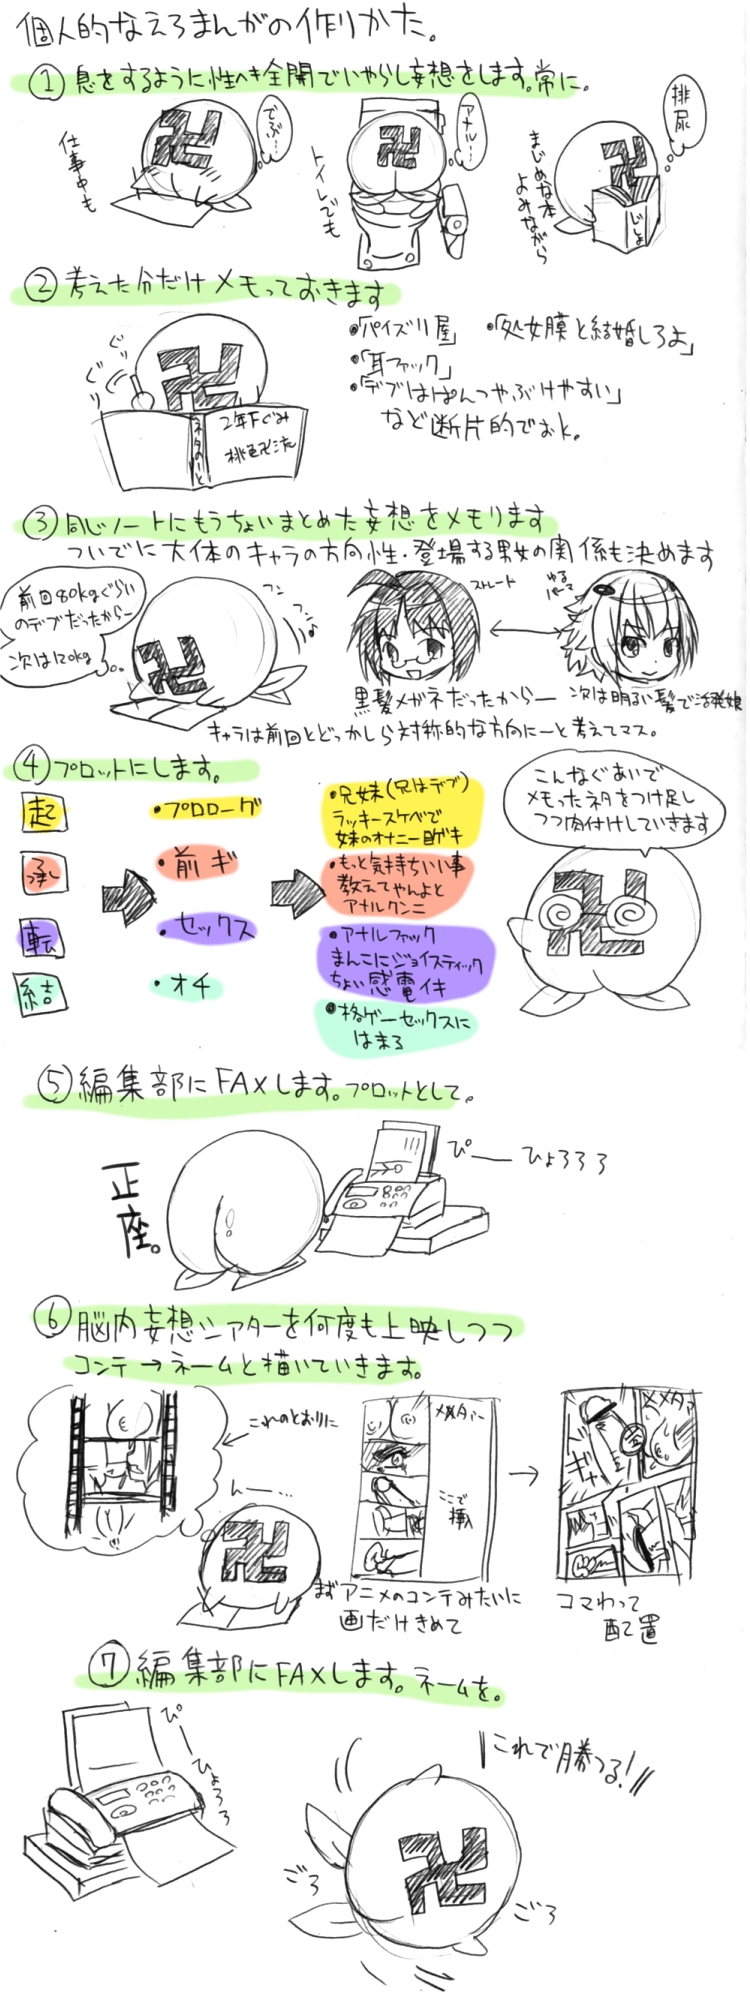 個人的なえろまんがの作りかた。
① 息をするように性へき全開でいやらし妄想をします。常に。
でぶ…
仕事中も
アナルー…
トイレでも
排尿
じしょ
まじめな本
よみながら
② 考えた分だけメモっておきます
ぐりぐり
ネタのーと
2年F ぐみ
•「パイズリ屋」 •「処女膜と結婚しろよ」
•「耳ファック」
•「デブはぱんつやぶけやすい」
など断片的でおk。
③ 同じノートにもうちょいまとめた妄想をメモります
ついでに大体のキャラの方向性・登場する男女の関係も決めます
前回80kgぐらい
のデブだったからー
次は120kg
フンフン♪
ストレート
ゆる
パーマ
黒髪メガネだったからー 次は明るい髪で活発娘
キャラは前回とどっかしら対称的な方向にーと考えてマス。
④ プロットにします。
起
•プロローグ
•兄妹(兄はデブ)
ラッキースケベで
妹のオナニー目ゲキ
承
•前ギ
•もっと気持ちいい事
教えてやんよと
アナルクンニ
転
•セックス
•アナルファック
まんこにジョイスティック
ちょい感電イキ
結
•オチ
•格ゲーセックスに
はまる
こんなぐあいで
メモったネタをつけ足し
つつ肉付けしていきます
⑤ 編集部にFAXします。プロットとして。
正座。
ぴー ひょろろろ
⑥ 脳内妄想シアターを何度も上映しつつ
コンテ→ネームと描いていきます。
これのとおりに
んー…
メメタァー
ここで
挿入
まずアニメのコンテみたいに
画だけきめて
メメタァ
コマわって
配置
⑦ 編集部にFAXします。ネームを。
ぴーひょろろ
これで勝つる!
ごろ
ごろ